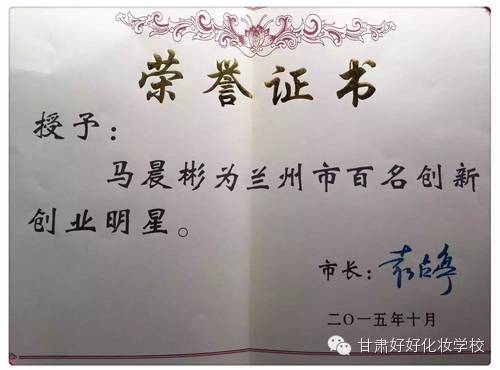 荣誉证书
授予：
马晨彬为兰州市百名创新
创业明星。
市长：袁占亭
二〇一五年十月
甘肃好好化妆学校